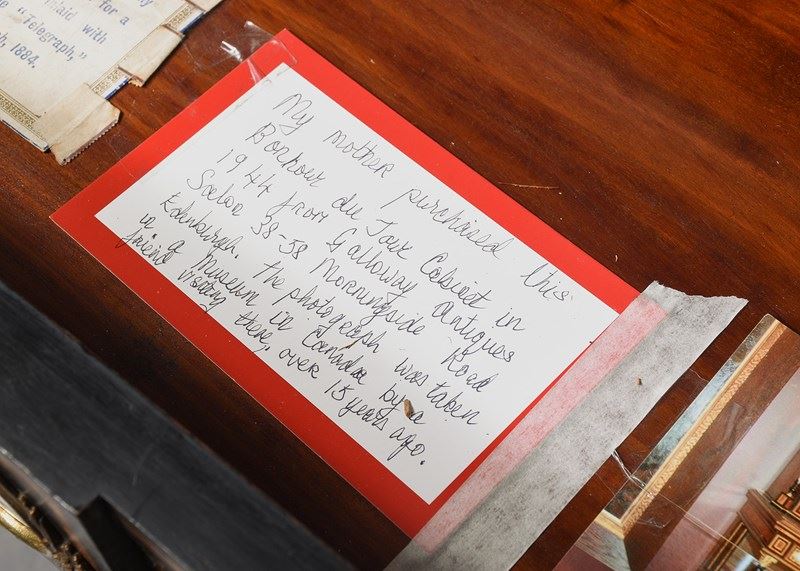 for a
inlaid with
"Telegraph,"
1884.
My mother purchased this
Bonhour du Jour Cabinet in
1944 from Galloway Antiques
Salon 38-58 Morningside Road
Edinburgh. The photograph was taken
in a Museum in Canada by a
friend visiting there, over 15 years ago.